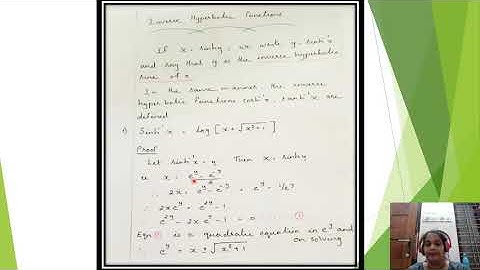 Inverse Hyperbolic Functions
If x = sinhy, we write y = sinh⁻¹x
and say that y is the inverse hyperbolic
sine of x
In the same manner, the inverse
hyperbolic functions cosh⁻¹x, tanh⁻¹x are
defined
1) Sinh⁻¹x = log [x + √x²+1]
Proof
Let sinh⁻¹x = y Then x = sinhy
ie x = e^y - e^-y / 2
∴ 2x = e^y - e^-y = e^y - 1/e^y
∴ 2xe^y = e^2y - 1
∴ e^2y - 2xe^y - 1 = 0 ①
Eqn ① is a quadratic equation in e^y and
on solving
∴ e^y = x ± √x²+1